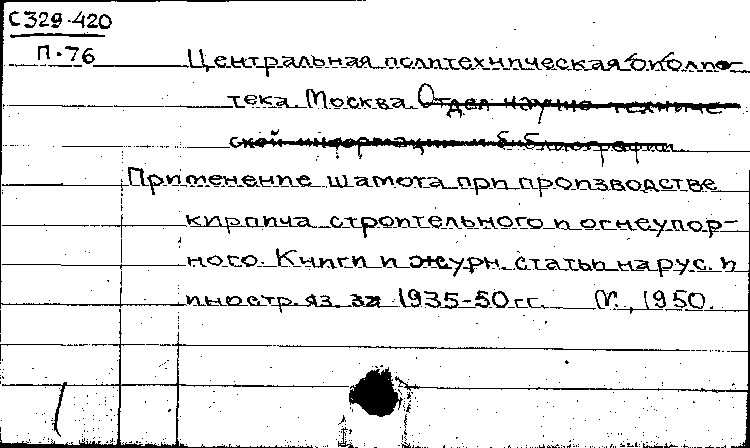 С329-420
П-76
Центральная политехническая библио-
тека. Москва. Отдел научно-техниче-
ской информации и библиографии.
Применение шамота при производстве
кирпича строительного и огнеупор-
ного. Книги и журн. статьи на рус. и
иностр. яз. за 1935-50 гг. М., 1950.